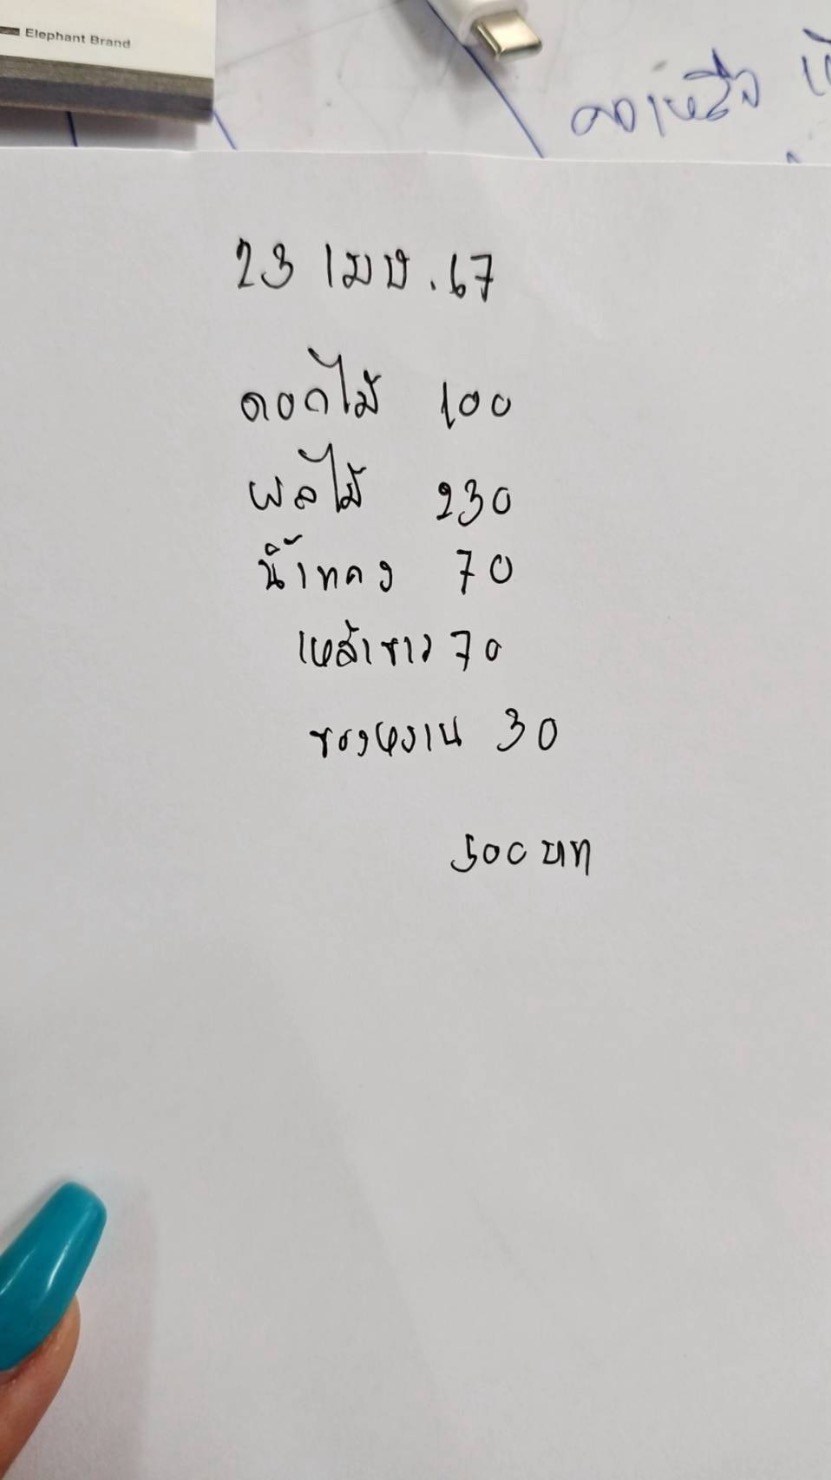 Elephant Brand
คงเหลือ
23 เมษ.67
ดอกไม้ 100
ผลไม้ 230
น้ำแดง 70
เหล้าขาว 70
ของหวาน 30
500 บาท